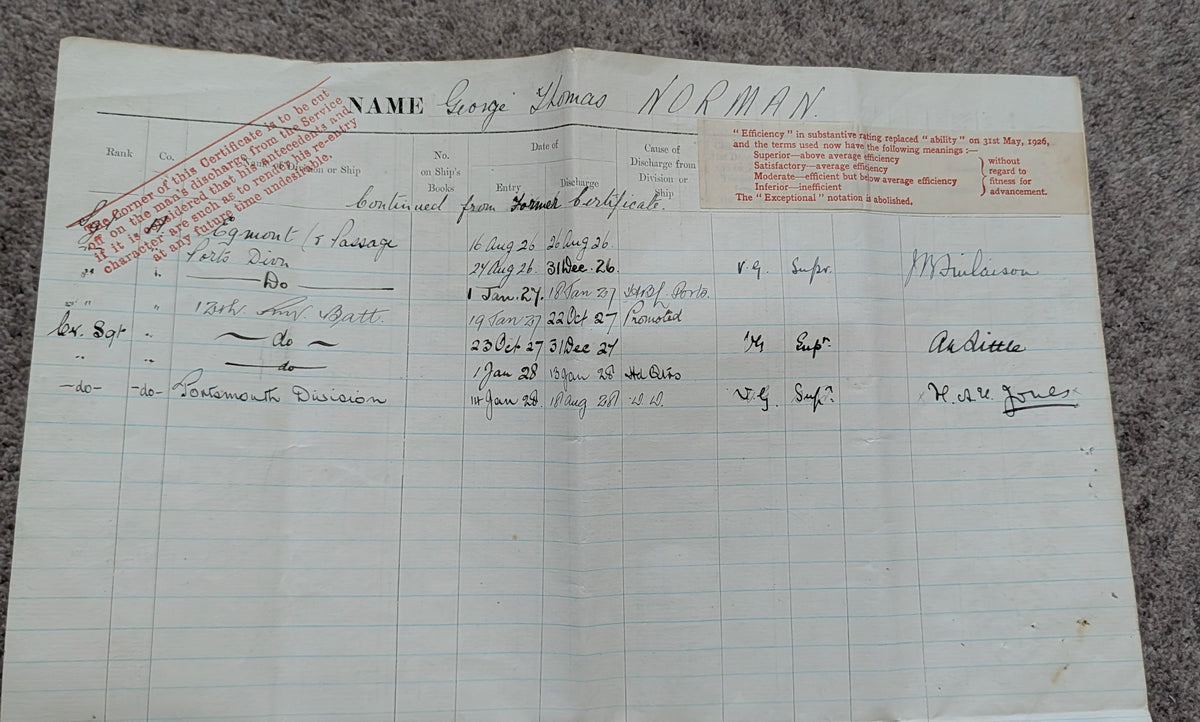 NAME George Thomas NORMAN.
The Corner of this Certificate is to be cut
off on the man's discharge from the Service
if it is considered that his antecedents and
character are such as to render his re-entry
at any future time undesirable.
"Efficiency" in substantive rating replaced "ability" on 31st May, 1926,
and the terms used now have the following meanings:—
Superior—above average efficiency
Satisfactory—average efficiency
Moderate—efficient but below average efficiency
Inferior—inefficient
without
regard to
fitness for
advancement.
The "Exceptional" notation is abolished.
Rank Co. Division or Ship No. on Ship's Books Date of Entry Discharge Cause of Discharge from Division or Ship
Continued from Former Certificate.
Egmont Passage 16 Aug 26 26 Aug 26.
" " Ports Divn 27 Aug 26. 31 Dec. 26. V.G. Supr.
Do 1 Jan. 27. 18 Jan 27 Ports.
" " " Batt. 19 Jan 27 22 Oct 27 Promoted
Cr. Sgt " do 23 Oct 27 31 Dec 27 VG Supr. Little
" " do 1 Jan 28 13 Jan 28 Hd Qrs
-do- -do- Portsmouth Division 14 Jan 28 18 Aug 28 V.G. Supr. Jones